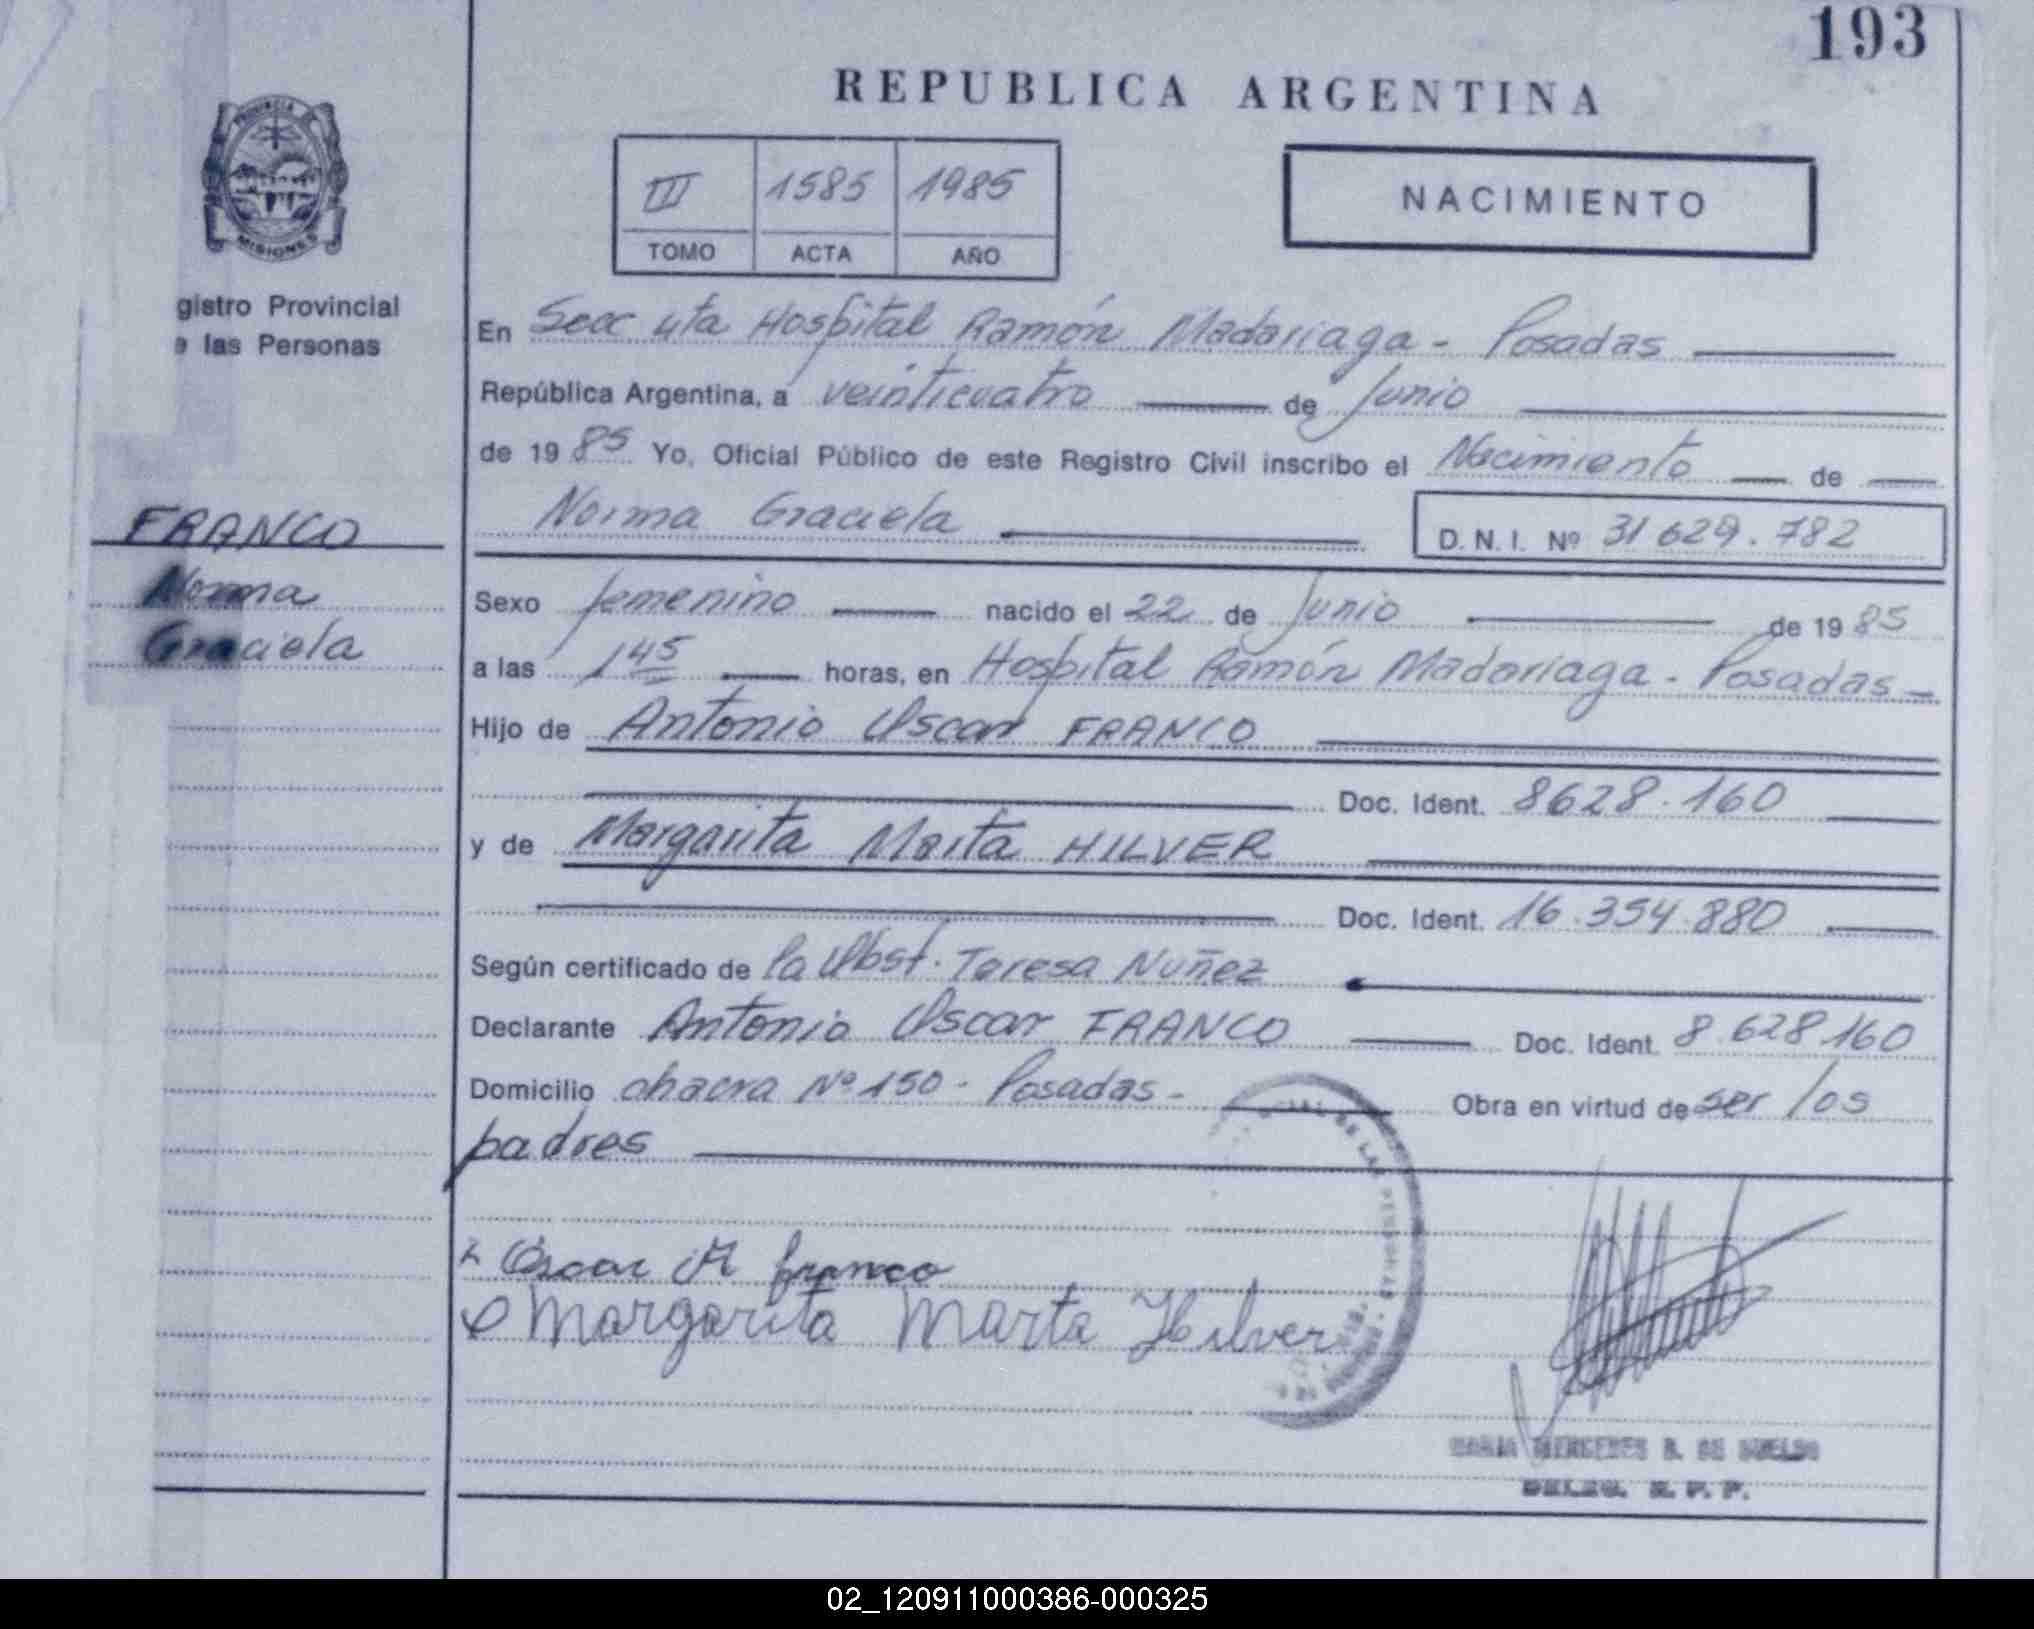 193
REPUBLICA ARGENTINA
PROVINCIA DE
MISIONES
gistro Provincial
e las Personas
III 1585 1985
TOMO ACTA AÑO
NACIMIENTO
En Secc 4ta Hospital Ramón Madariaga - Posadas
República Argentina, a veinticuatro de Junio
de 19 85 Yo, Oficial Público de este Registro Civil inscribo el Nacimiento de
Norma Graciela D.N.I. Nº 31629.782
FRANCO
Norma
Graciela
Sexo femenino nacido el 22 de Junio de 19 85
a las 1 45 horas, en Hospital Ramón Madariaga - Posadas -
Hijo de Antonio Oscar FRANCO
Doc. Ident. 8628.160
y de Margarita Marta HILVER
Doc. Ident. 16.354.880
Según certificado de la Obst. Teresa Nuñez
Declarante Antonio Oscar FRANCO Doc. Ident. 8.628.160
Domicilio chacra Nº 150 - Posadas - Obra en virtud de ser los
padres
Oscar A franco
Margarita Marta Hilver
DE LAS PERSONAS
MARIA MERCEDES
DELEG. R. P. P.
02_120911000386-000325